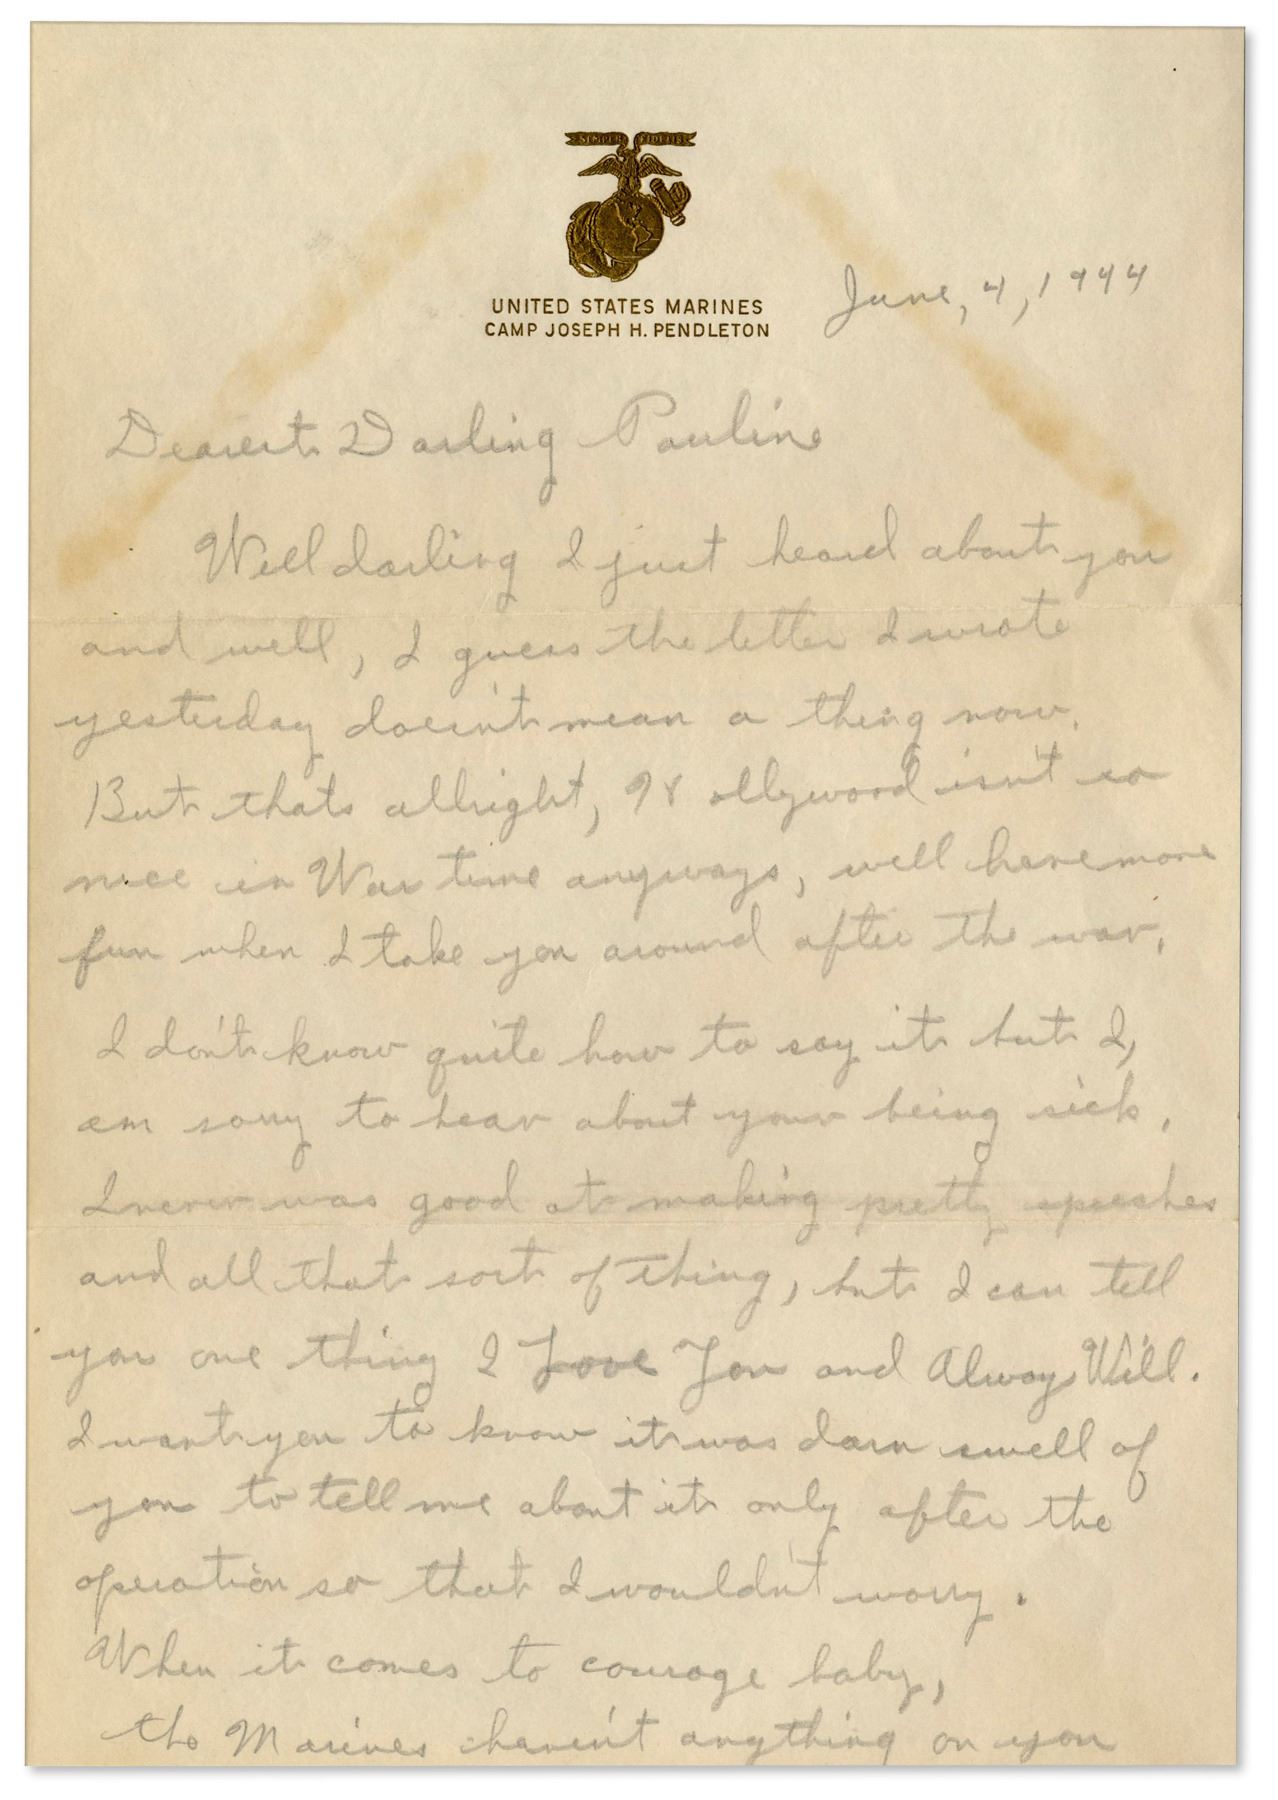 SEMPER FIDELIS
UNITED STATES MARINES
CAMP JOSEPH H. PENDLETON
June, 4, 1944
Dearest Darling Pauline
Well darling I just heard about you
and well, I guess the letter I wrote
yesterday doesn't mean a thing now.
But thats allright, Hollywood isn't so
nice in War time anyways, well have more
fun when I take you around after the war.
I don't know quite how to say it but I,
am sorry to hear about your being sick.
I never was good at making pretty speeches
and all that sort of thing, but I can tell
you one thing I Love You and Alway Will.
I want you to know it was darn swell of
you to tell me about it only after the
operation so that I wouldn't worry.
When it comes to courage baby,
the Marines haven't anything on you